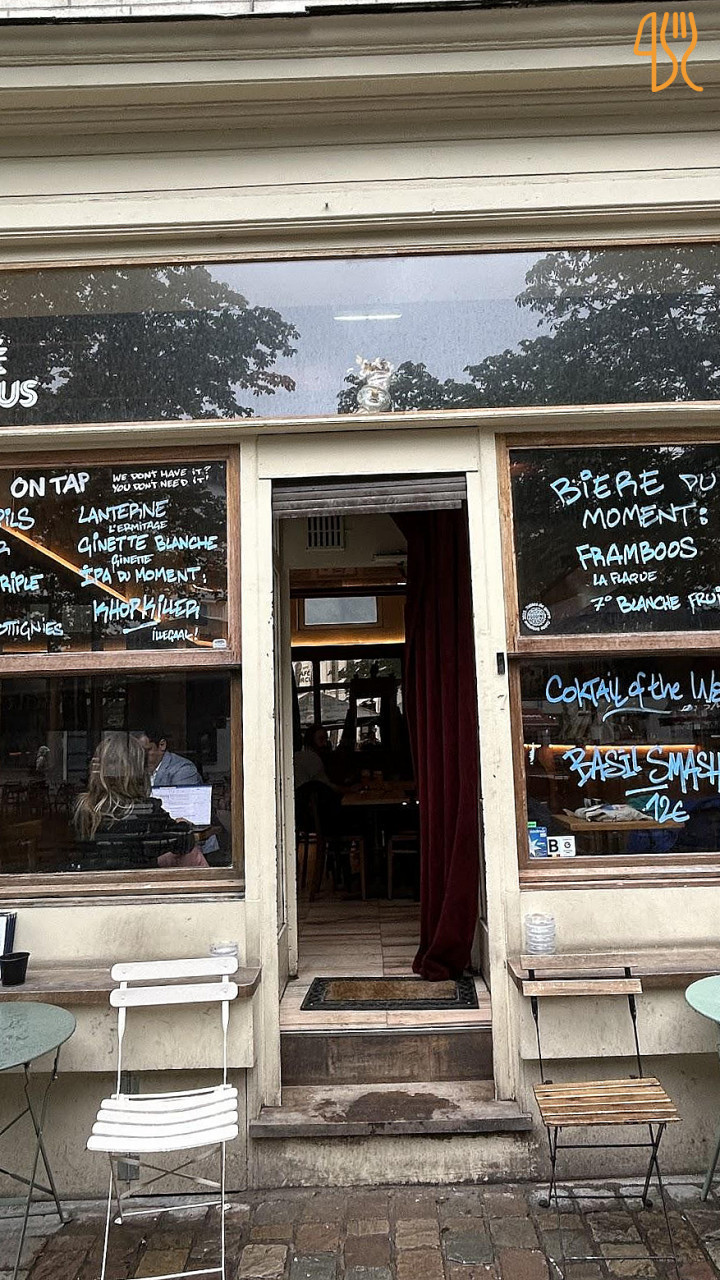 US
ON TAP
WE DON'T HAVE IT?
YOU DON'T NEED IT!
PILS
LANTERNE
L'ERMITAGE
GINETTE BLANCHE
GINETTE
RIPLE
IPA DU MOMENT:
KHOP KILLER
OTTIGNIES
ILLEGAAL!
BIERE DU
MOMENT:
FRAMBOOS
LA FLARUE
7° BLANCHE FRUI
COKTAIL of the WE
BASIL SMASH
12€
B